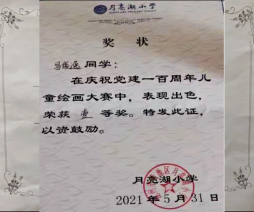 月亮湖小学
奖状
同学：
在庆祝党建一百周年儿
童绘画大赛中，表现出色，
荣获 壹 等奖。特发此证，
以资鼓励。
月亮湖小学
2021年5月31日